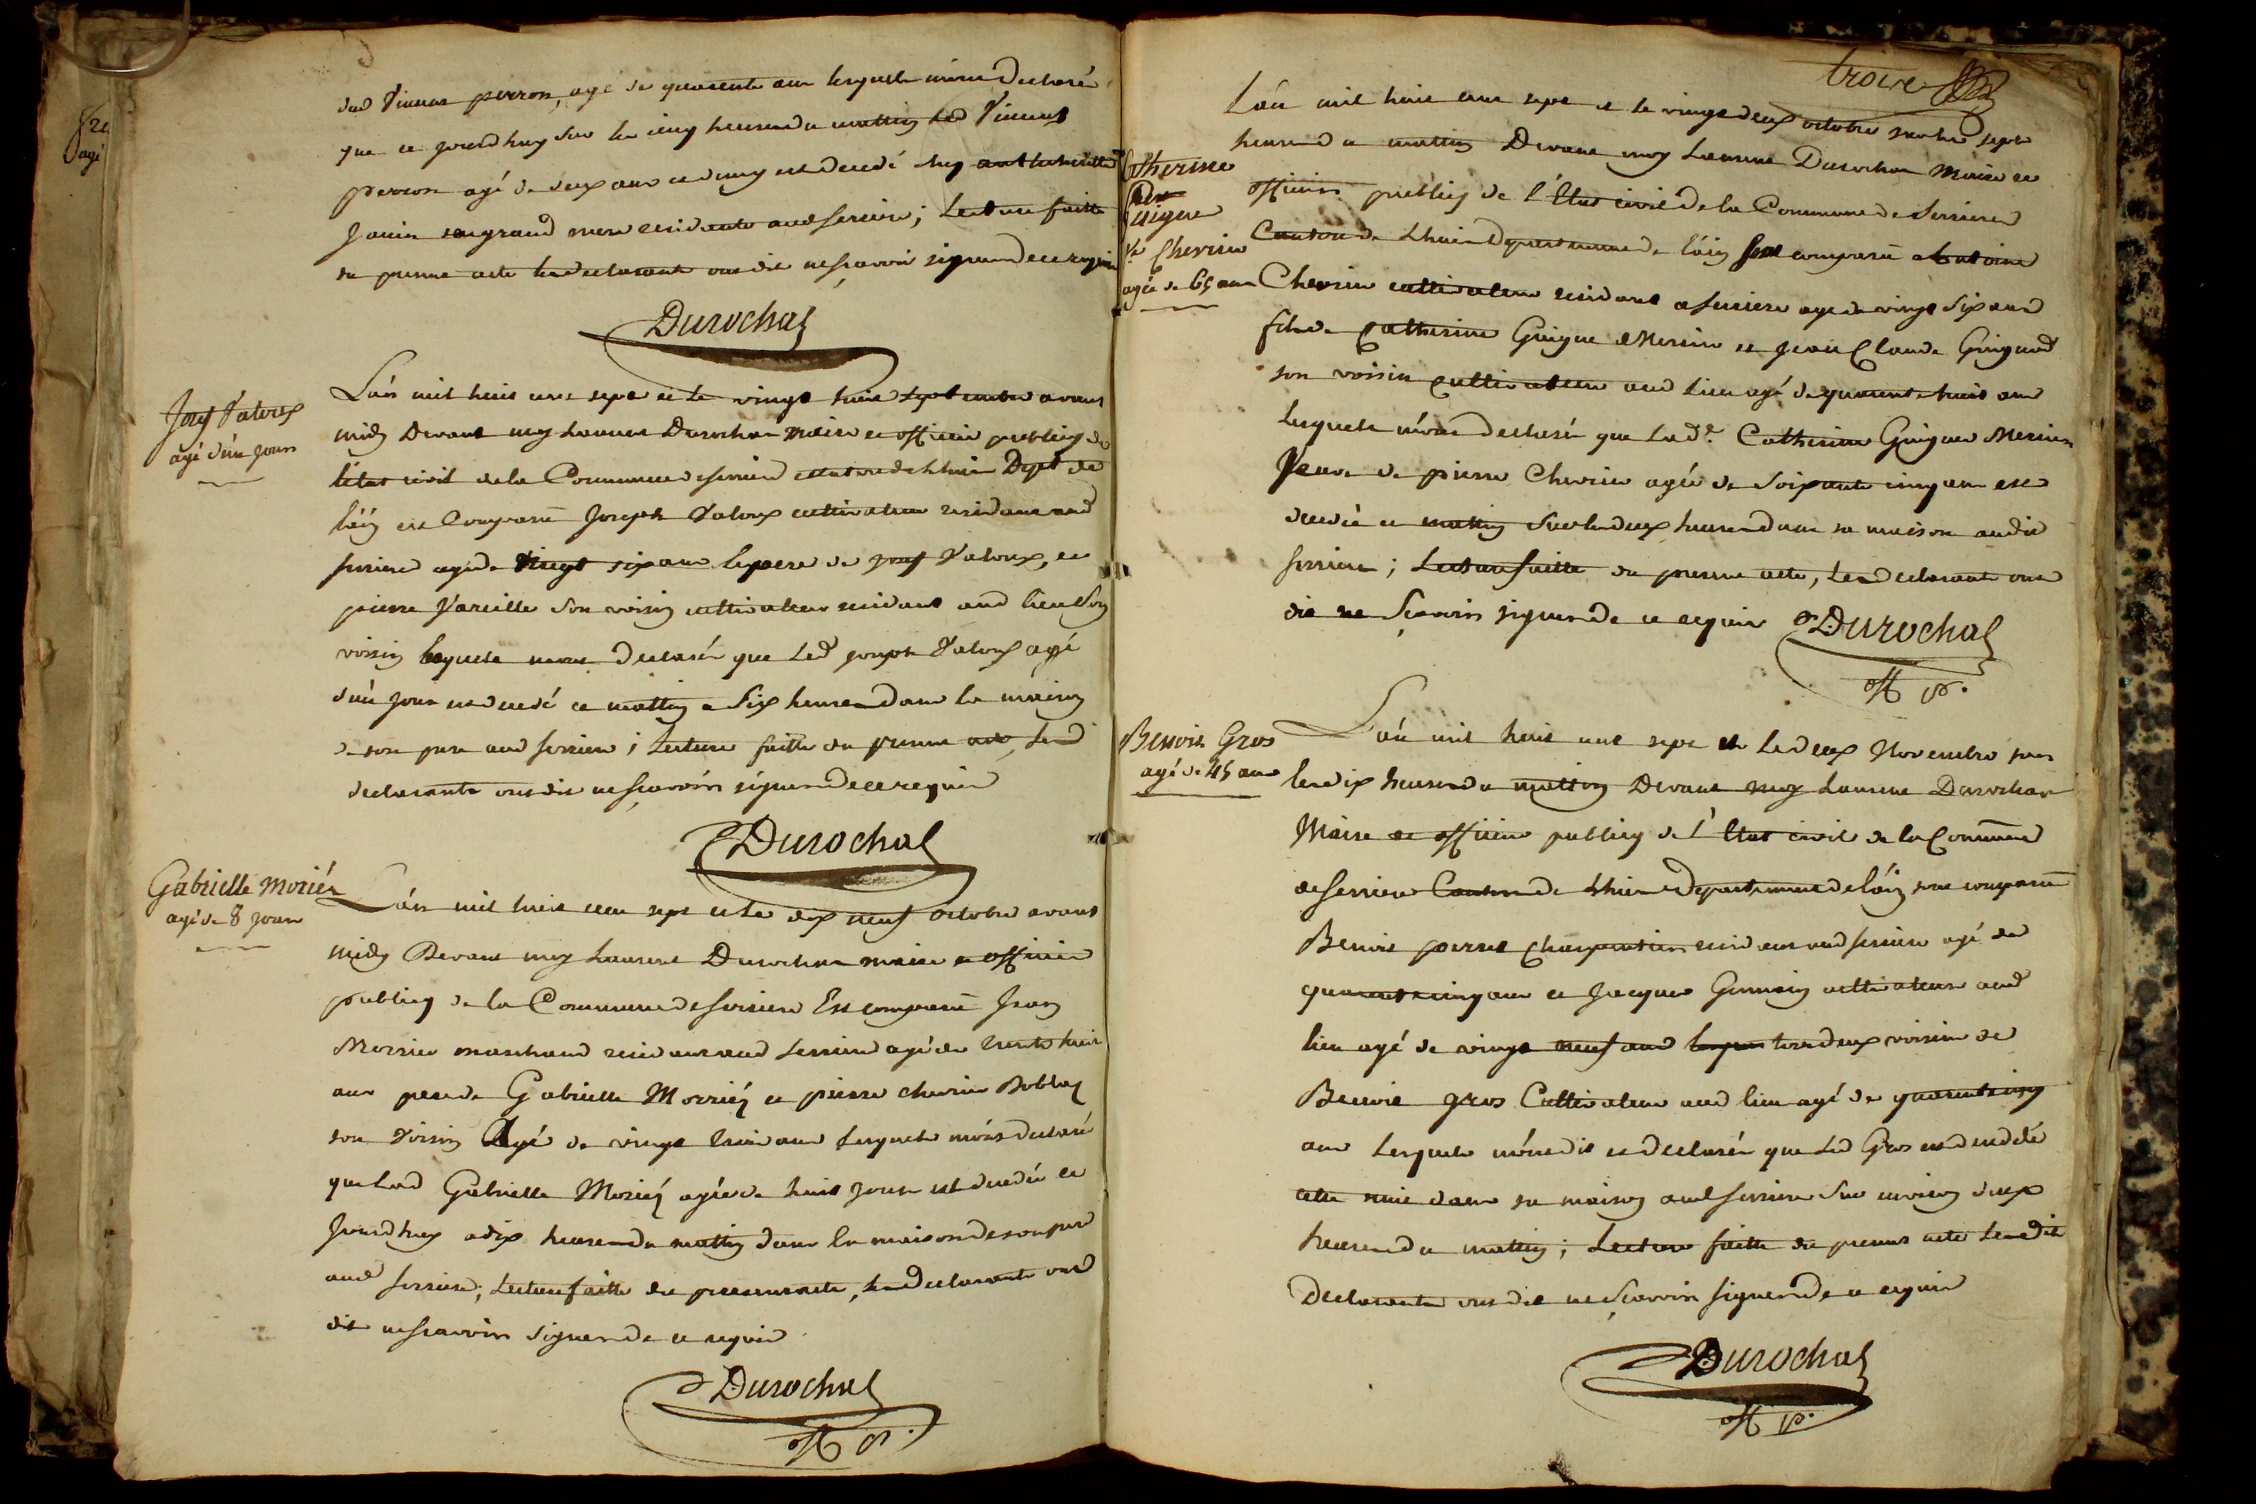 dud Vincent perron, agé de quarente ans lesquels m'ont Declaré
que ce jourdhuy sur les cinq heures du mattin led Vincent
perron agé de deux ans et demy est decedé chez
Janin sa grand mere residante aud serriere; Lecture faitte
du present acte les declarants ont dit ne sçavoir signer de ce requis
Durochat
Josef Vatoux
agé d'un jours
L'an mil huit cent sept et le vingt huit septembre avant
midy Devant moy Laurent Durochat Maire et officier publicq de
l'état civil de la Commune de serriere canton de Lhuis Dept de
l'ain est Comparu Joseph Vatoux cultivateur residant aud
serriere agé de vingt six ans le pere de josef Vatoux, et
pierre Vareille son voisin cultivateur residant aud lieu son
voisin lesquels m'ont Declarés que led joseph Vatoux agé
d'un jour est decedé ce mattin a six heures dans la maison
de son pere aud serriere; Lecture faitte du present acte, les d
declarants ont dit ne sçavoir signer de ce requis
Durochat
Gabrielle Moriér
agé de 8 jours
L'an mil huit cent sept et le dix neuf octobre avant
midy Devant moy Laurent Durochat maire et officier
publicq de la Commune de serriere Est comparu Jean
Morrier marchand residant aud serriere agé de trente huit
ans pere de Gabrielle Morriér et pierre chevrier
son Voisin Agé de vingt trois ans lesquels m'ont declaré
que lad Gabrielle Moriér agée de huit jours est decedée ce
jourdhuy a dix heures du mattin dans la maison de son pere
aud serriere; Lecture faitte du present acte, les declarants ont
dit ne sçavoir signer de ce requis
Durochat
off p.
troize
Catherine
Guigue
Ve Chevrier
agée de 65 ans
L'an mil huit cent sept et le vingt deux octobre sur les sept
heures du mattin Devant moy Laurent Durochat Maire et
officier publicq de l'Etat civil de la Commune de Serriere
Canton de Lhuis Departement de l'ain sont comparu Antoine
Chevrier cultivateur residant a serriere age de vingt six ans
fils de Catherine Guigue Mersier et Jean Claude Guigard
son voisin cultivateur aud lieu agé de quarente huit ans
lesquels m'ont declarés que lad.e Catherine Guigue Mersier
Veuve de pierre Chevrier agée de soixante cinq ans est
decedée ce mattin sur les deux heures dans sa maison audit
serriere; Lecture faitte du present acte, les declarants ont
dit ne sçavoir signer de ce requis Durochat
off p.
Benoit Gros
agé de 45 ans
L'an mil huit cent sept et le deux Novembre sur
les dix heures du mattin Devant moy Laurent Durochat
Maire et officier publicq de l'Etat civil de la Commune
de serriere Canton de Lhuis Departement de l'ain sont comparu
Benoit perret Charpentier residant aud serriere agé de
quarente cinq ans et Jacques Gunnin cultivateur aud
lieu agé de vingt neuf ans tous deux voisins de
Benoit gros Cultivateur aud lieu agé de quarente cinq
ans Lesquels m'ont dit et declarés que led Gros est decedé
cette nuit dans sa maison aud serriere sur environ deux
heures du mattin; Lecture faitte du present acte lesdit
Declarants ont dit ne sçavoir signer de ce requis
Durochat
off p.